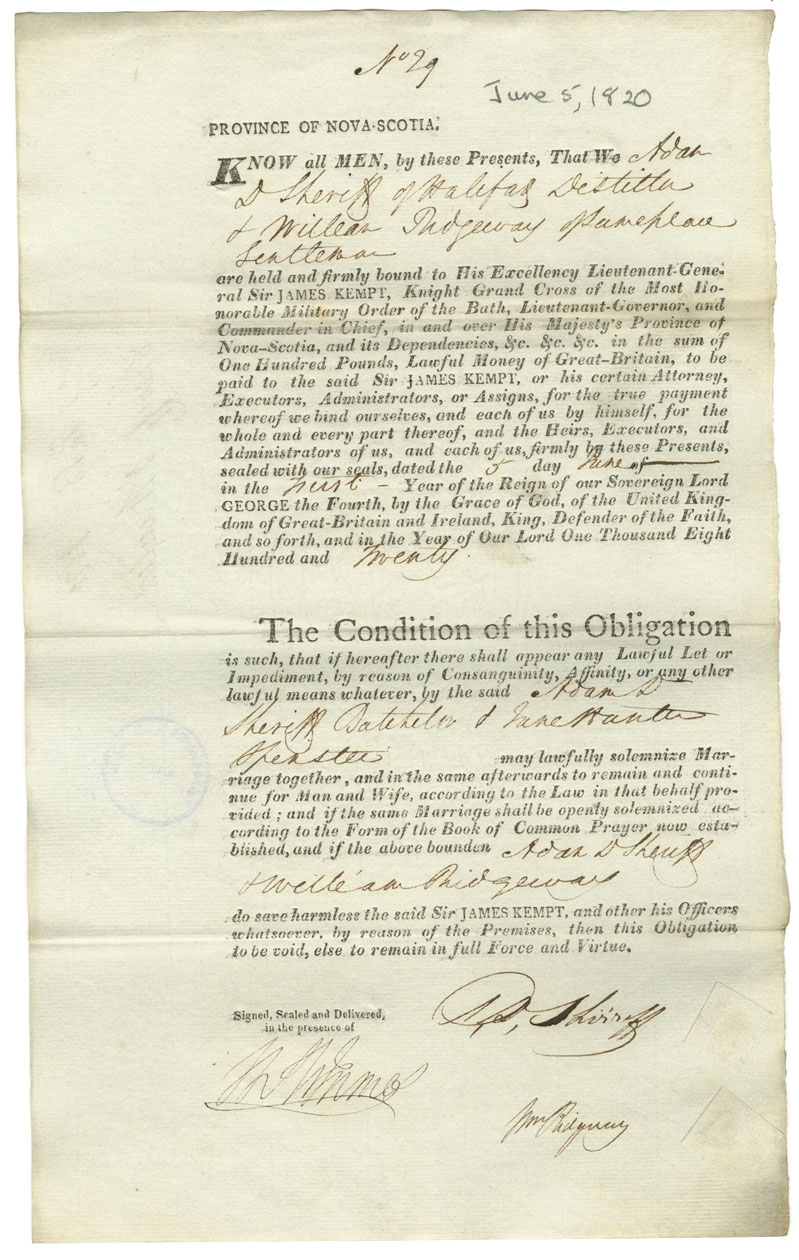 No 29
June 5, 1820
PROVINCE OF NOVA-SCOTIA.
KNOW all MEN, by these Presents, That We Adam
D Sheriff of Halifax Distiller
& William Ridgeway of same place
Gentleman
are held and firmly bound to His Excellency Lieutenant-Gene-
ral Sir JAMES KEMPT, Knight Grand Cross of the Most Ho-
norable Military Order of the Bath, Lieutenant-Governor, and
Commander in Chief, in and over His Majesty's Province of
Nova-Scotia, and its Dependencies, &c. &c. &c. in the sum of
One Hundred Pounds, Lawful Money of Great-Britain, to be
paid to the said Sir JAMES KEMPT, or his certain Attorney,
Executors, Administrators, or Assigns, for the true payment
whereof we bind ourselves, and each of us by himself, for the
whole and every part thereof, and the Heirs, Executors, and
Administrators of us, and each of us, firmly by these Presents,
sealed with our seals, dated the 5 day June of
in the First - Year of the Reign of our Sovereign Lord
GEORGE the Fourth, by the Grace of God, of the United King-
dom of Great-Britain and Ireland, King, Defender of the Faith,
and so forth, and in the Year of Our Lord One Thousand Eight
Hundred and Twenty.
The Condition of this Obligation
is such, that if hereafter there shall appear any Lawful Let or
Impediment, by reason of Consanguinity, Affinity, or any other
lawful means whatever, by the said Adam D
Sheriff Batchelor & Jane Hunter
Spenster
may lawfully solemnize Mar-
riage together, and in the same afterwards to remain and conti-
nue for Man and Wife, according to the Law in that behalf pro-
vided; and if the same Marriage shall be openly solemnized ac-
cording to the Form of the Book of Common Prayer now esta-
blished, and if the above bounden Adam D Sheriff
& William Ridgeway
do save harmless the said Sir JAMES KEMPT, and other his Officers
whatsoever, by reason of the Premises, then this Obligation
to be void, else to remain in full Force and Virtue.
Signed, Sealed and Delivered,
in the presence of
A D, Shirreff
Wm Ridgway